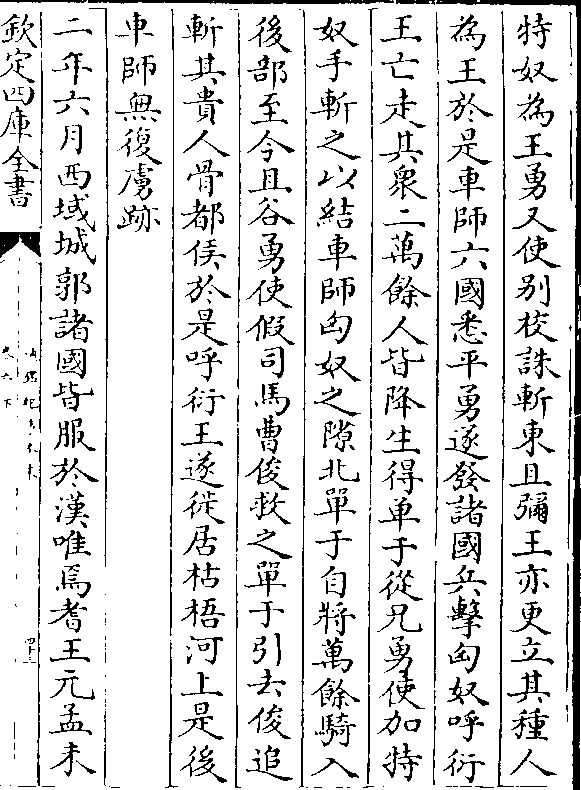 特奴為王勇又使别校誅斬東且彌王亦更立其種人
為王於是車師六國悉平勇遂發諸國兵擊匈奴呼衍
王亡走其衆二萬餘人皆降生得单于從兄勇使加特
奴手斬之以結車師匈奴之隙北單于自將萬餘騎入
後部至今且谷勇使假司馬曹俊救之單于引去俊追
斬其貴人骨都侯於是呼衍王遂徙居枯梧河上是後
車師無復虜跡
二年六月西域城郭諸國皆服於漢唯焉耆王元孟未
欽定四庫全書
卷六下
四十三